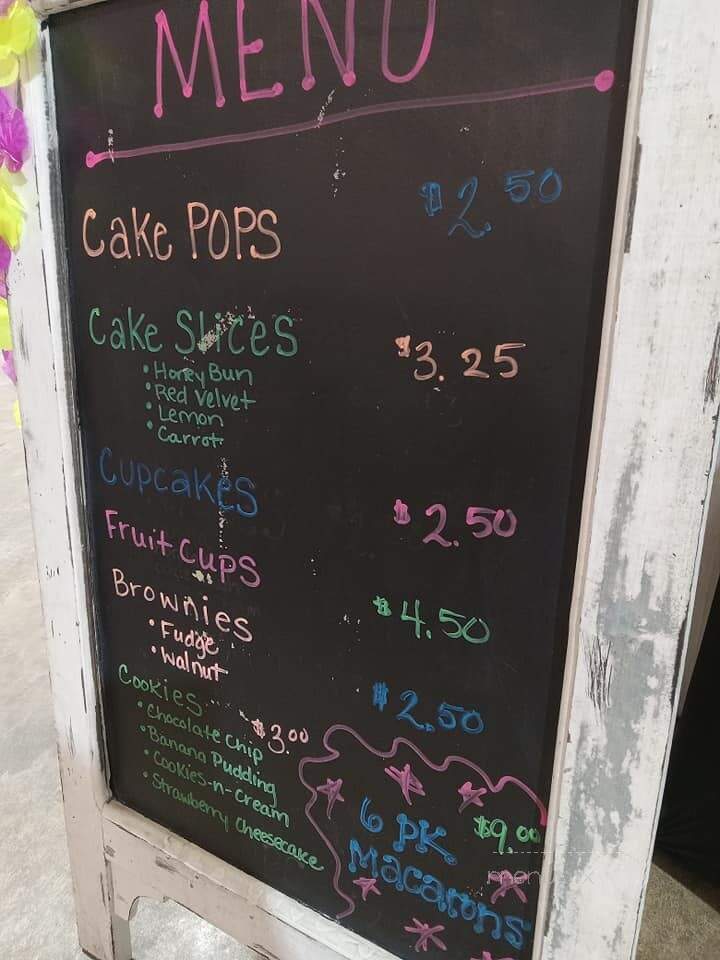 MENU
Cake POPS $2.50
Cake Slices $3.25
• Honey Bun
• Red Velvet
• Lemon
• Carrot
Cupcakes $2.50
Fruit Cups $4.50
Brownies $2.50
• Fudge
• Walnut
Cookies $3.00
• Chocolate Chip
• Banana Pudding
• Cookies-n-Cream
• Strawberry Cheesecake
6 PK $9.00
Macarons